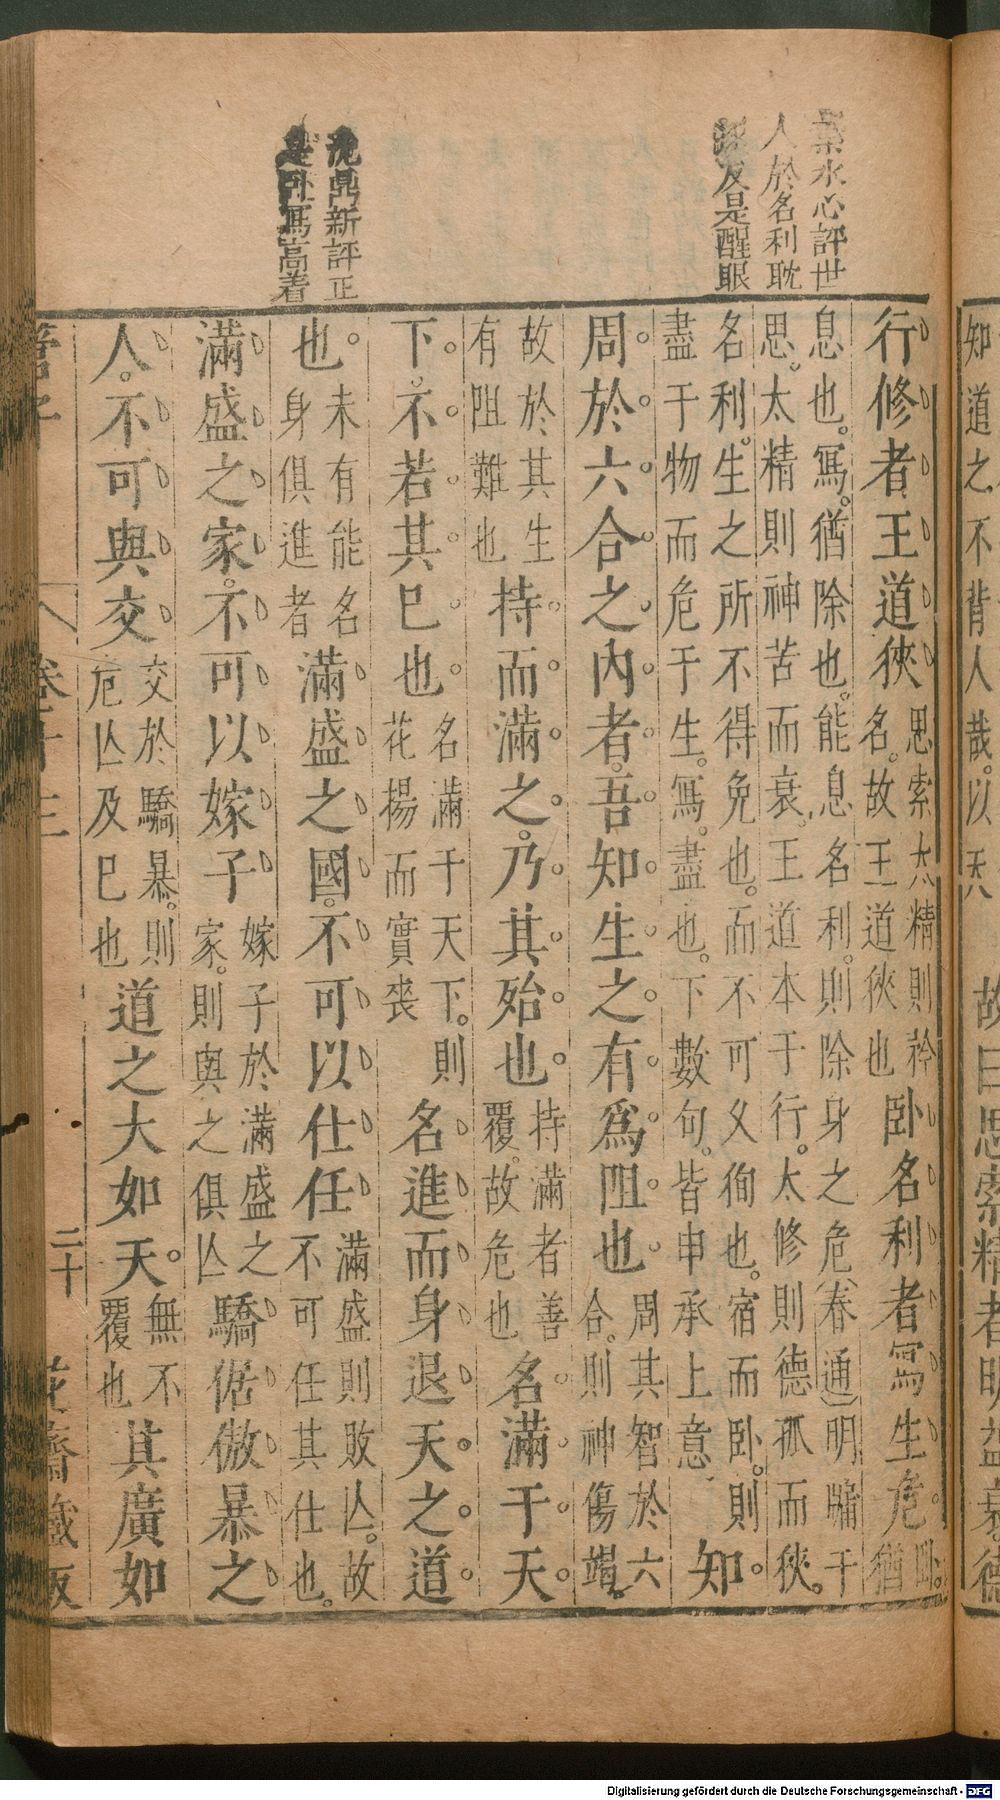 葉水心評世
人於名利耽
友是醒眼
沈鼎新評正
是臥寫嵩着
行修者王道狹思索太精則矜
名故王道狹也臥名利者寫生危臥猶
息也寫猶除也能息名利則除身之危春通明牗于
思太精則神苦而衰王道本于行太修則德孤而狹
名利生之所不得免也而不可义徇也宿而臥則
盡于物而危于生寫盡也下數句皆申承上意知
周於六合之內者吾知生之有爲阻也周其智於六
合則神傷竭
故於其生
有阻難也持而滿之乃其殆也持滿者善
覆故危也名滿于天
下不若其已也名滿于天下則
花揚而實丧名進而身退天之道
也未有能名
身俱進者滿盛之國不可以仕任滿盛則敗亾故
不可任其仕也
滿盛之家不可以嫁子嫁子於滿盛之
家則與之俱亾驕倨傲暴之
人不可與交交於驕暴則
危亾及已也道之大如天無不
覆也其廣如
管子
卷十三
二十
花齋藏板
知道之不背人哉以天
故曰思索精者明益衰德
Digitalisierung gefördert durch die Deutsche Forschungsgemeinschaft - DFG